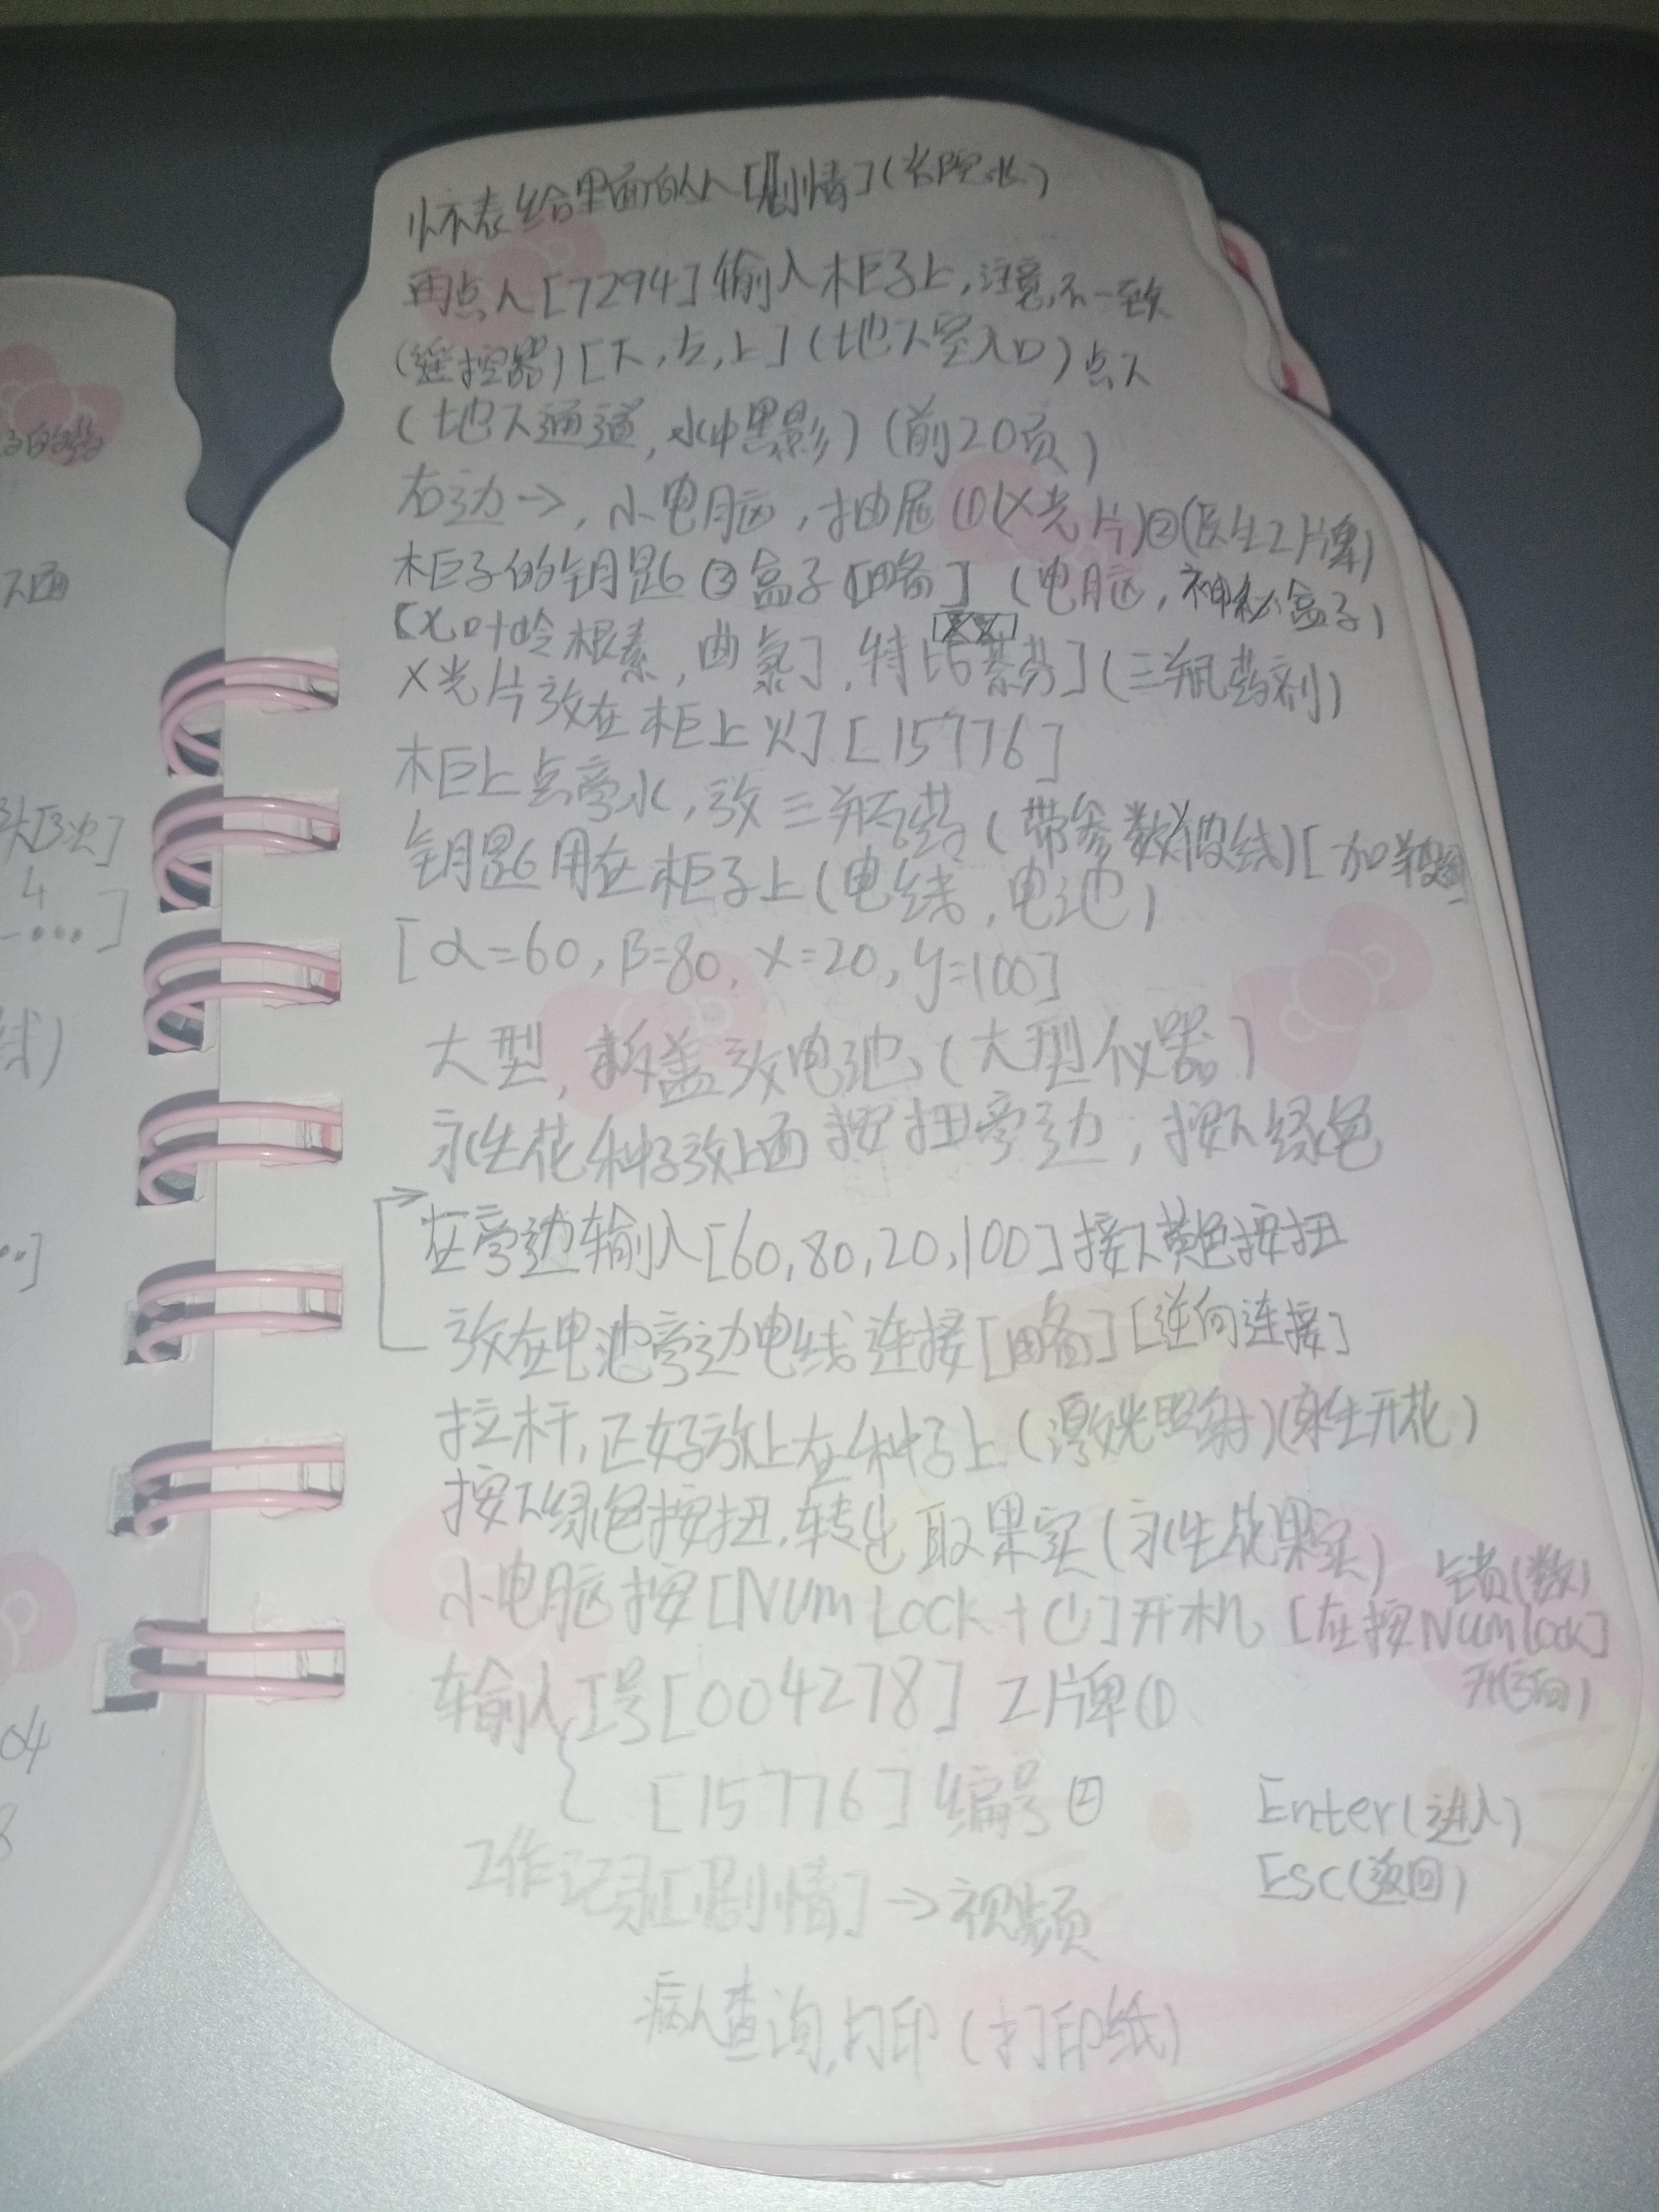 怀表给里面的人[剧情](老院长)
再点人[7294]输入柜子上,注意,不一致
(遥控器)[下,左,上](地下室入口)点下
(地下通道,水中黑影)(前20页)
右边→,小电脑,抽屉①(X光片)②(医生工牌)
柜子的钥匙③盒子[略](电脑,神秘盒子)
根素,曲氯],特比萘芬](三瓶药剂)
X光片放在柜上火][15776]
柜上点旁水,放三瓶药(带参数波线)
钥匙用在柜子上(电线,电池)
[α=60,β=80,x=20,y=100]
大型,拆盖放电池(大型仪器)
永生花种子放上面按扭旁边,按下绿色
在旁边输入[60,80,20,100]按下黄色按扭
放在电池旁边电线连接[略][逆向连接]
拉杆,正好放上在种子上(激光照射)(永生开花)
按下绿色按扭,转出取果实(永生花果实)
小电脑按[Num Lock+⏻]开机[在按Num lock]
输入工号[004278]工牌①
[15776]编号②
Enter(进入)
Esc(返回)
工作记录[剧情]→视频
病人查询,打印(打印纸)
下面
4
04
8